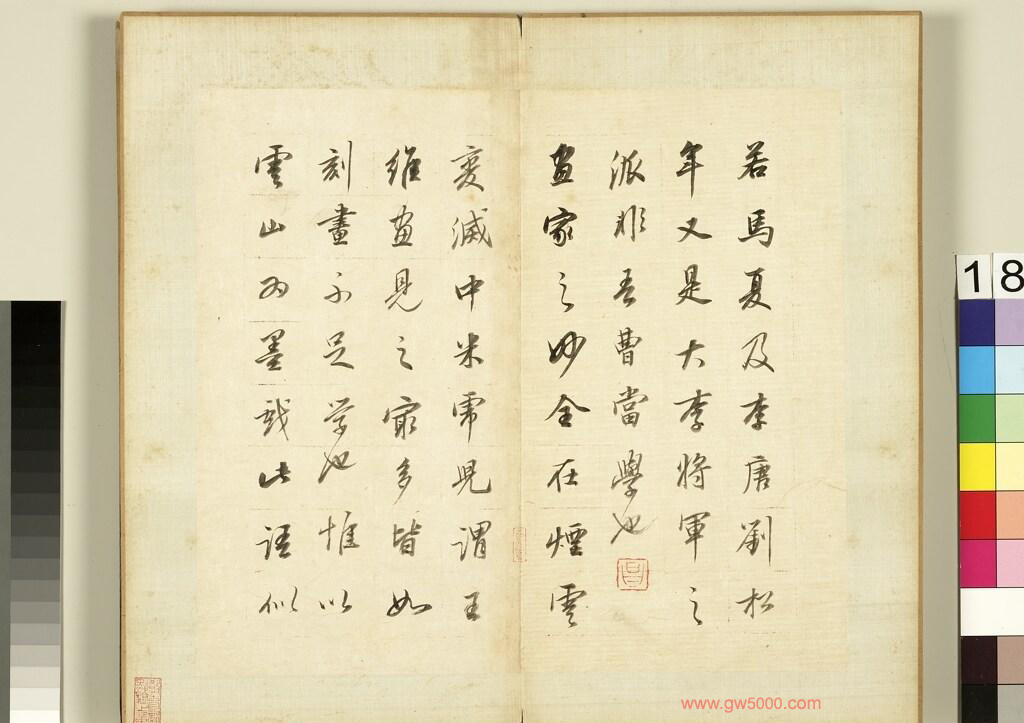 若馬夏及李唐劉松
年又是大李將軍之
派非吾曹當學也
畫家之妙全在煙雲
變滅中米虎兒謂王
維畫見之最多皆如
刻畫不足学也惟以
雲山為墨戲此語似
18
www.gw5000.com